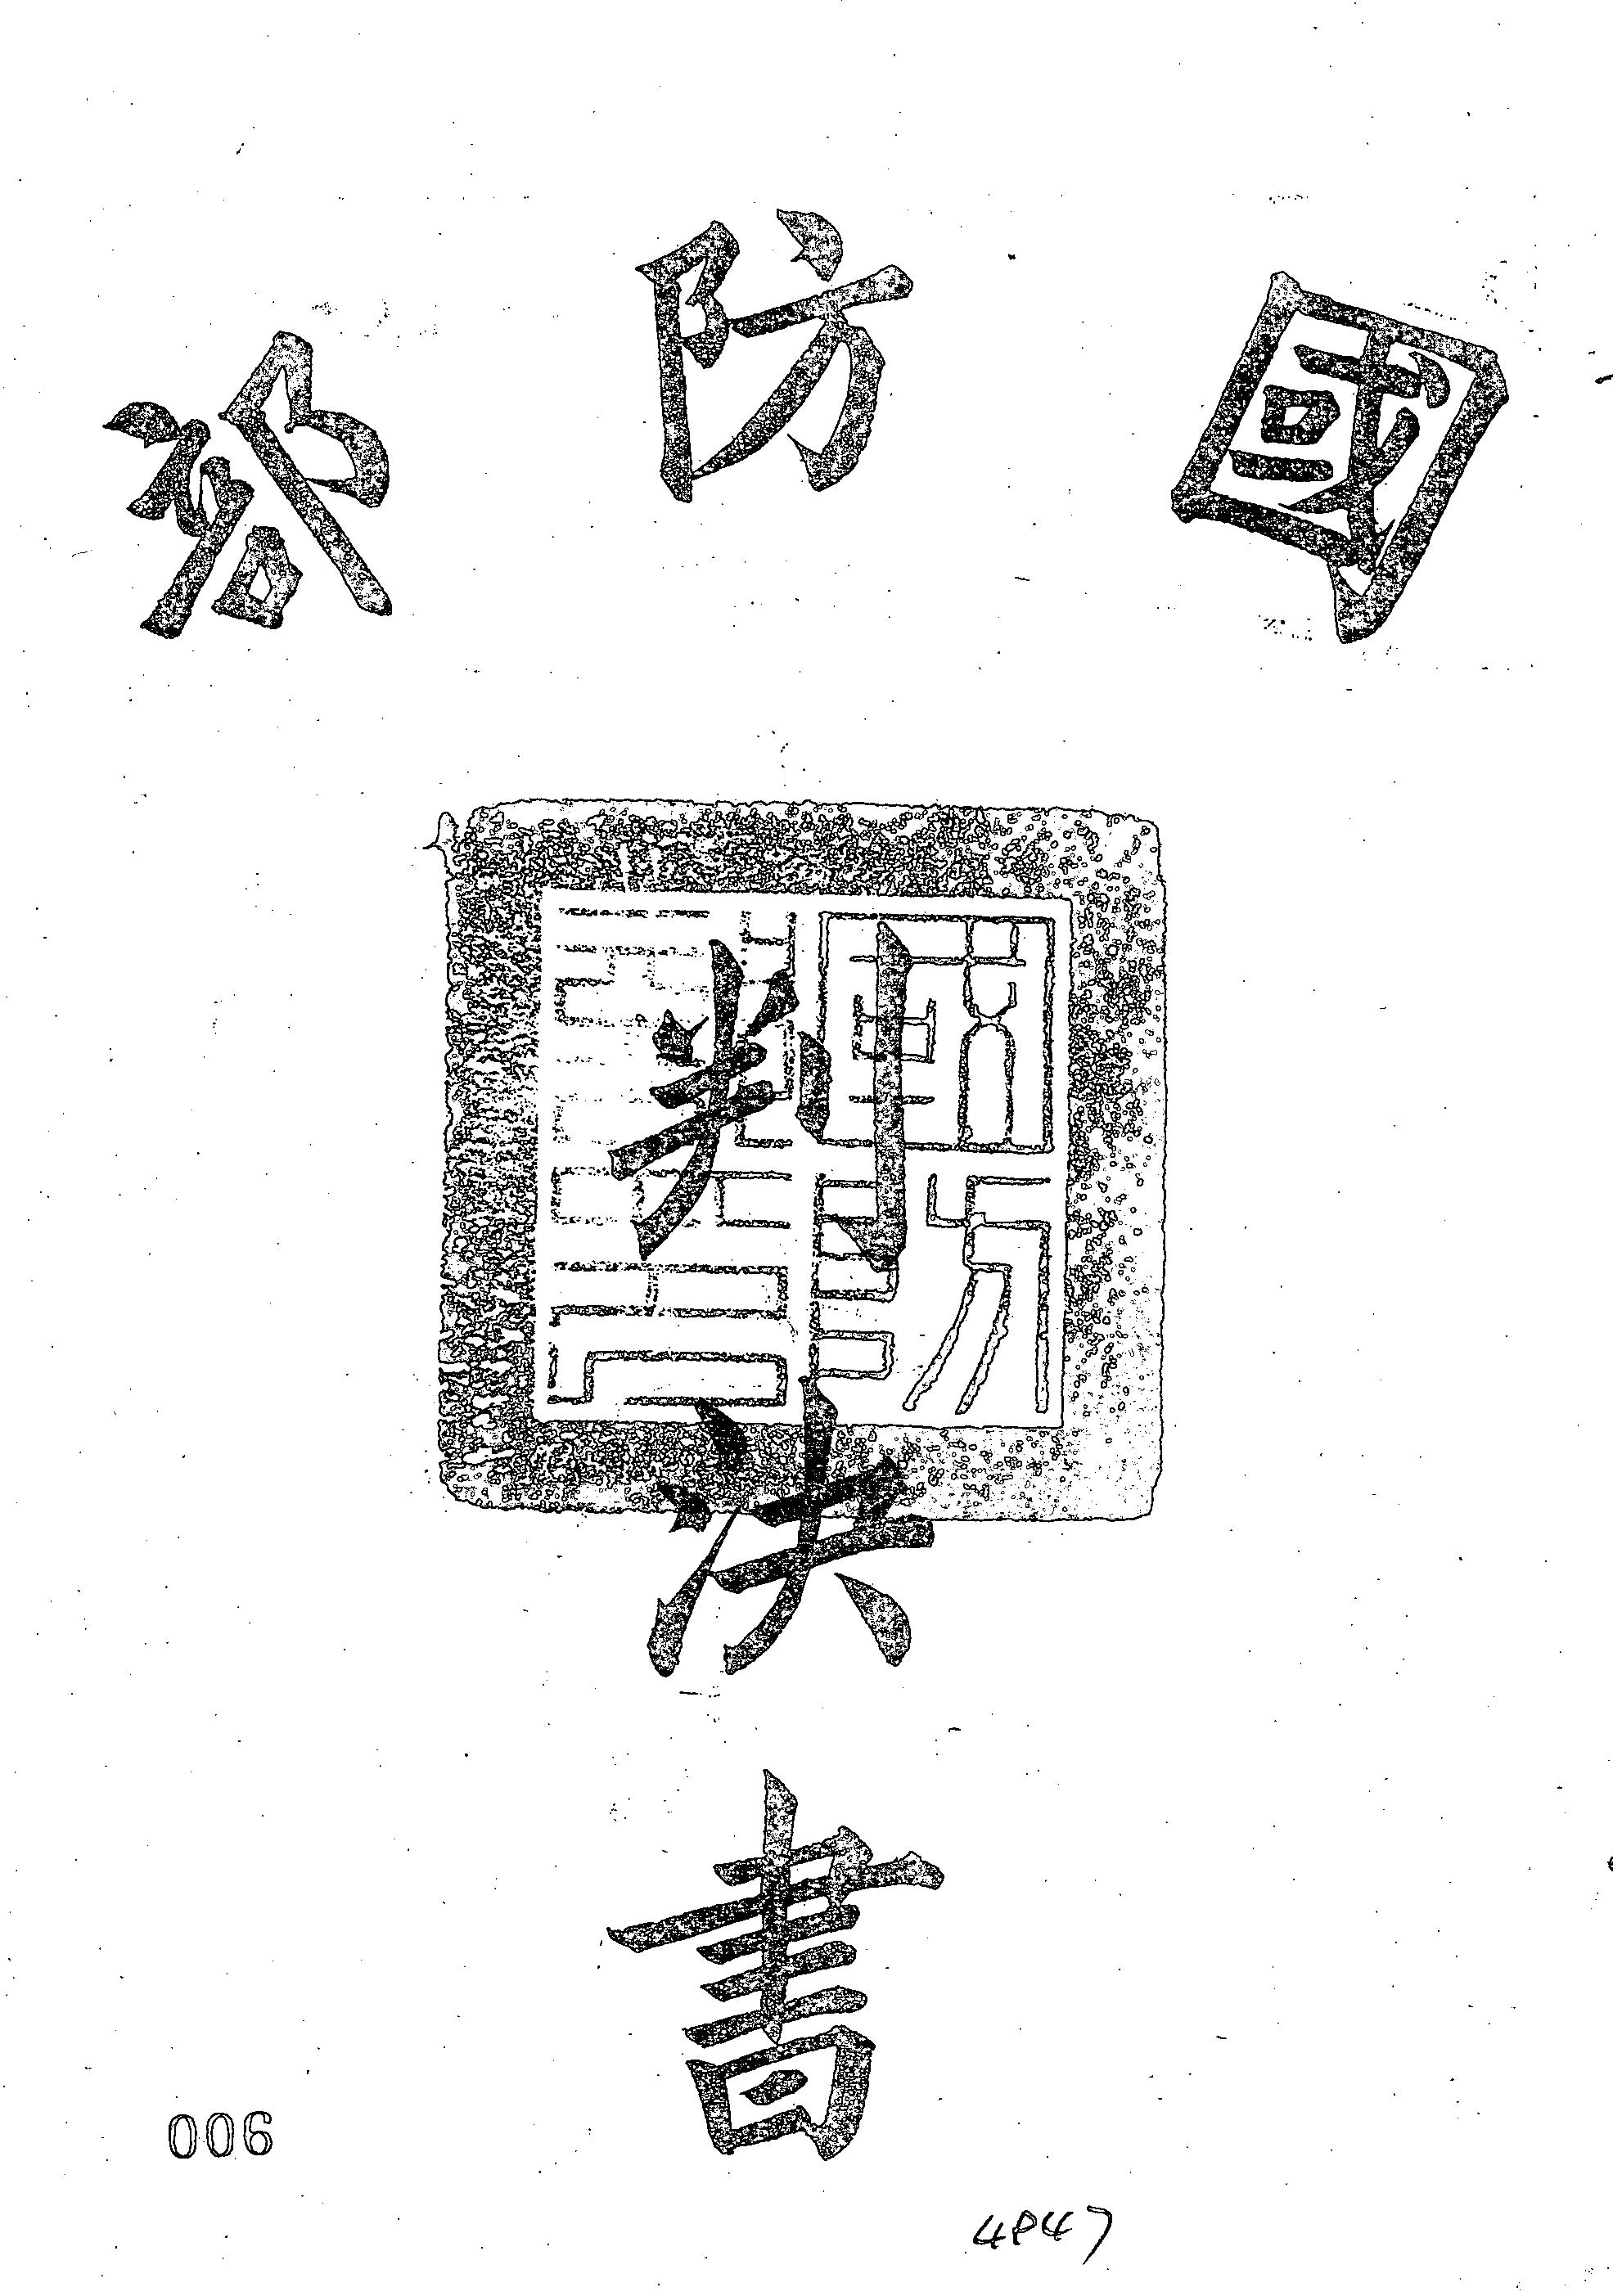 國防部
判決書
006